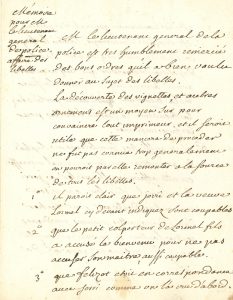 Mémoire
pour M
Le lieutenant
general
de police
affaire des
libelles
M. Le lieutenant general de la
police est tres humblement remercié
des bons ordres qu'il a bien voulu
donner au sujet des libelles.
La découverte des vignettes et autres
ornemens est un moyen sur pour
convaincre tout imprimeur, et il seroit
utile que cette maniere de proceder
ne fut pas connue trop generalement
on pouroit par elle remonter a la source
de tous les libelles.
1° il paroit clair que jorri et la veuve
Lormel cy devant indiquez sont coupables
2° que le petit colporteur de Lormel fils
a accusé la bienvenu pour ne pas
accuser son maitre aussi coupable.
3° que felizot etoit en correspondance
avec jorri comme on l'a cru d'abord.